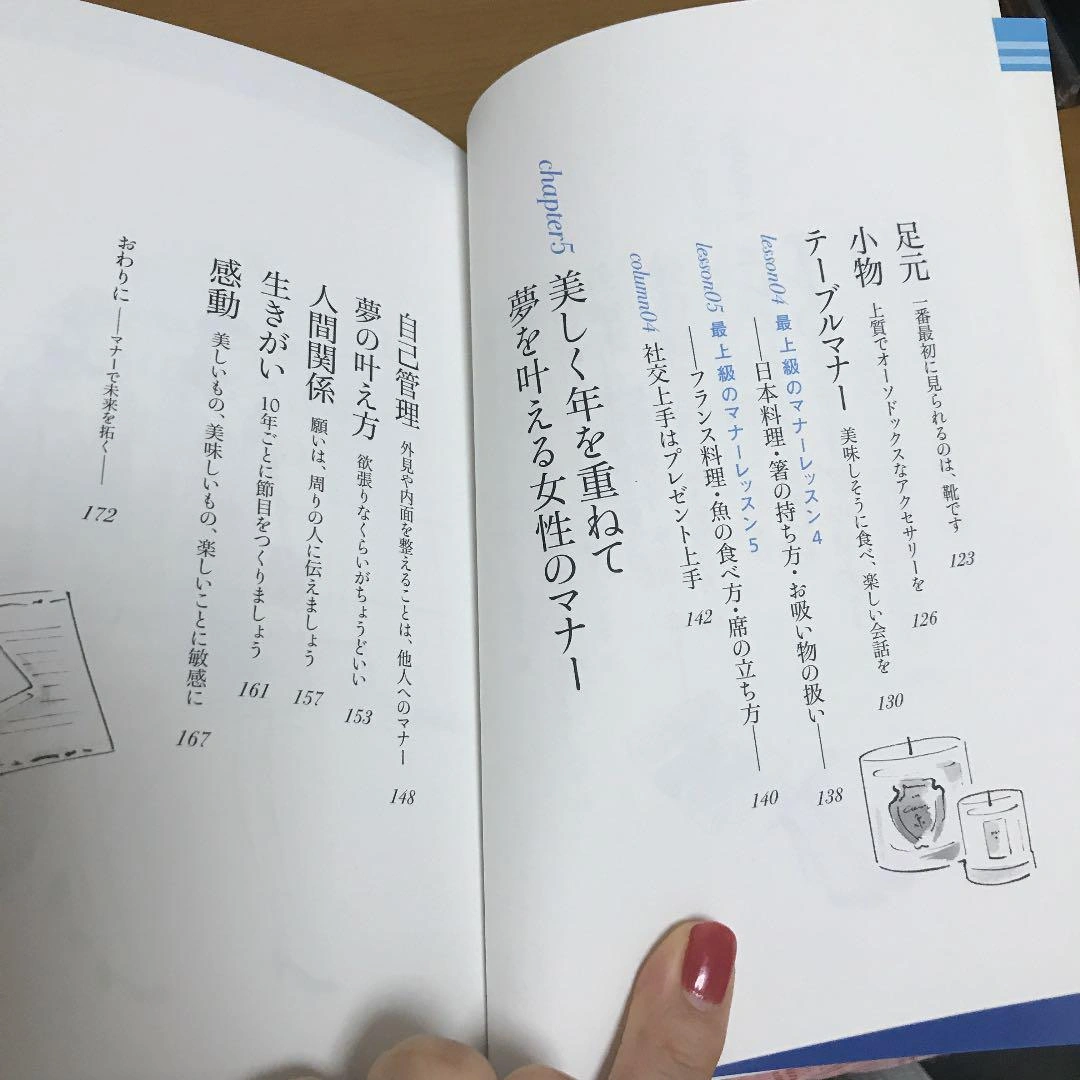 足元 一番最初に見られるのは、靴です 123
小物 上質でオーソドックスなアクセサリーを 126
テーブルマナー 美味しそうに食べ、楽しい会話を 130
lesson04 最上級のマナーレッスン4
――日本料理・箸の持ち方・お吸い物の扱い―― 138
lesson05 最上級のマナーレッスン5
――フランス料理・魚の食べ方・席の立ち方―― 140
column04 社交上手はプレゼント上手 142
chapter5 美しく年を重ねて
夢を叶える女性のマナー
自己管理 外見や内面を整えることは、他人へのマナー 148
夢の叶え方 欲張りなくらいがちょうどいい 153
人間関係 願いは、周りの人に伝えましょう 157
生きがい 10年ごとに節目をつくりましょう 161
感動 美しいもの、美味しいもの、楽しいことに敏感に 167
おわりに ――マナーで未来を拓く―― 172